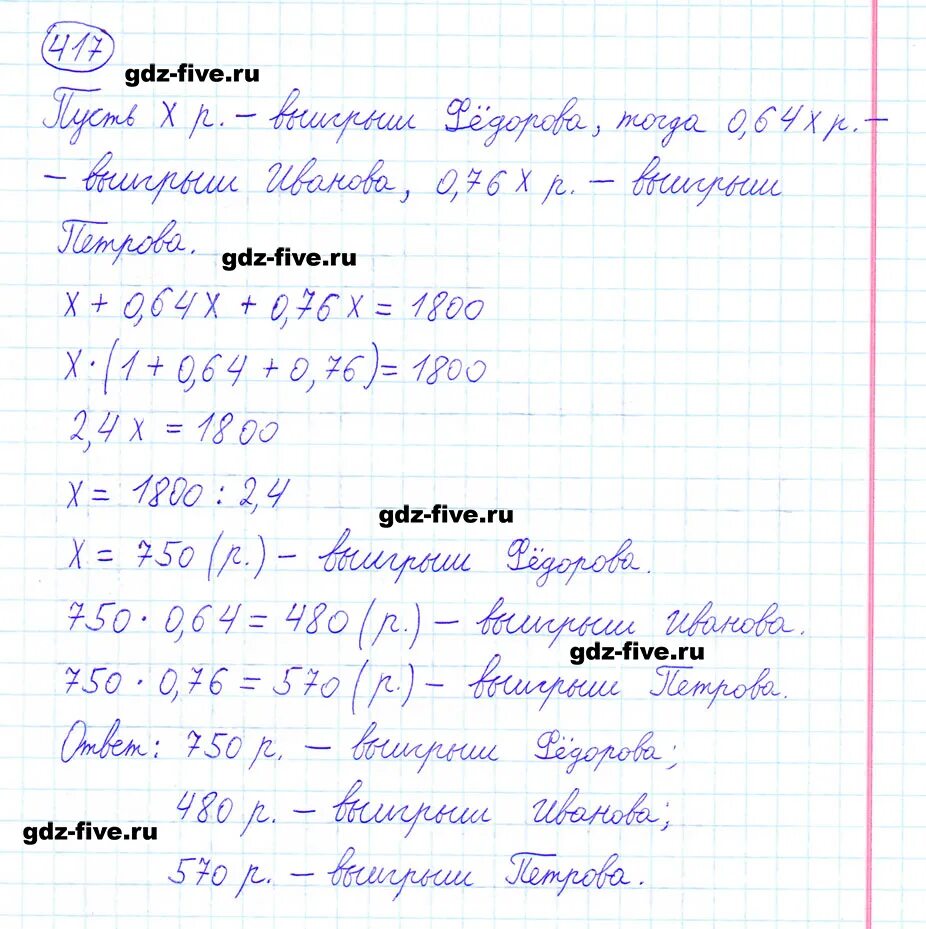 417
gdz-five.ru
Пусть х р. – выигрыш Фёдорова, тогда 0,64х р. –
– выигрыш Иванова, 0,76х р. – выигрыш
Петрова.
gdz-five.ru
х + 0,64х + 0,76х = 1800
х·(1 + 0,64 + 0,76) = 1800
2,4х = 1800
х = 1800 : 2,4
gdz-five.ru
х = 750 (р.) – выигрыш Фёдорова.
750 · 0,64 = 480 (р.) – выигрыш Иванова.
gdz-five.ru
750 · 0,76 = 570 (р.) – выигрыш Петрова.
Ответ: 750 р. – выигрыш Фёдорова;
480 р. – выигрыш Иванова;
gdz-five.ru
570 р. – выигрыш Петрова.